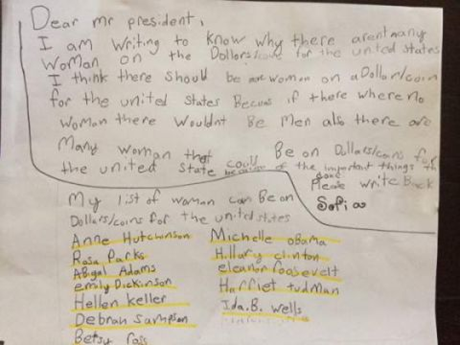 Dear mr president,
I am writing to know why there arent many
woman on the Dollors/coins for the united states
I think there should be woman on a Dollar/coin
for the united states Becous if there where no
woman there wouldnt Be men also there are
Many woman that could Be on Dollars/coins for
the united state because of the important things the
done
Please write Back
Sofia
My list of woman can Be on
Dollars/coins for the united states
Anne Hutchinson
Rosa Parks
Abigal Adams
emily Dickinson
Hellen keller
Debrah sampson
Betsy ross
Michelle obama
Hillary clinton
eleanor roosevelt
Harriet tudman
Ida.B. wells